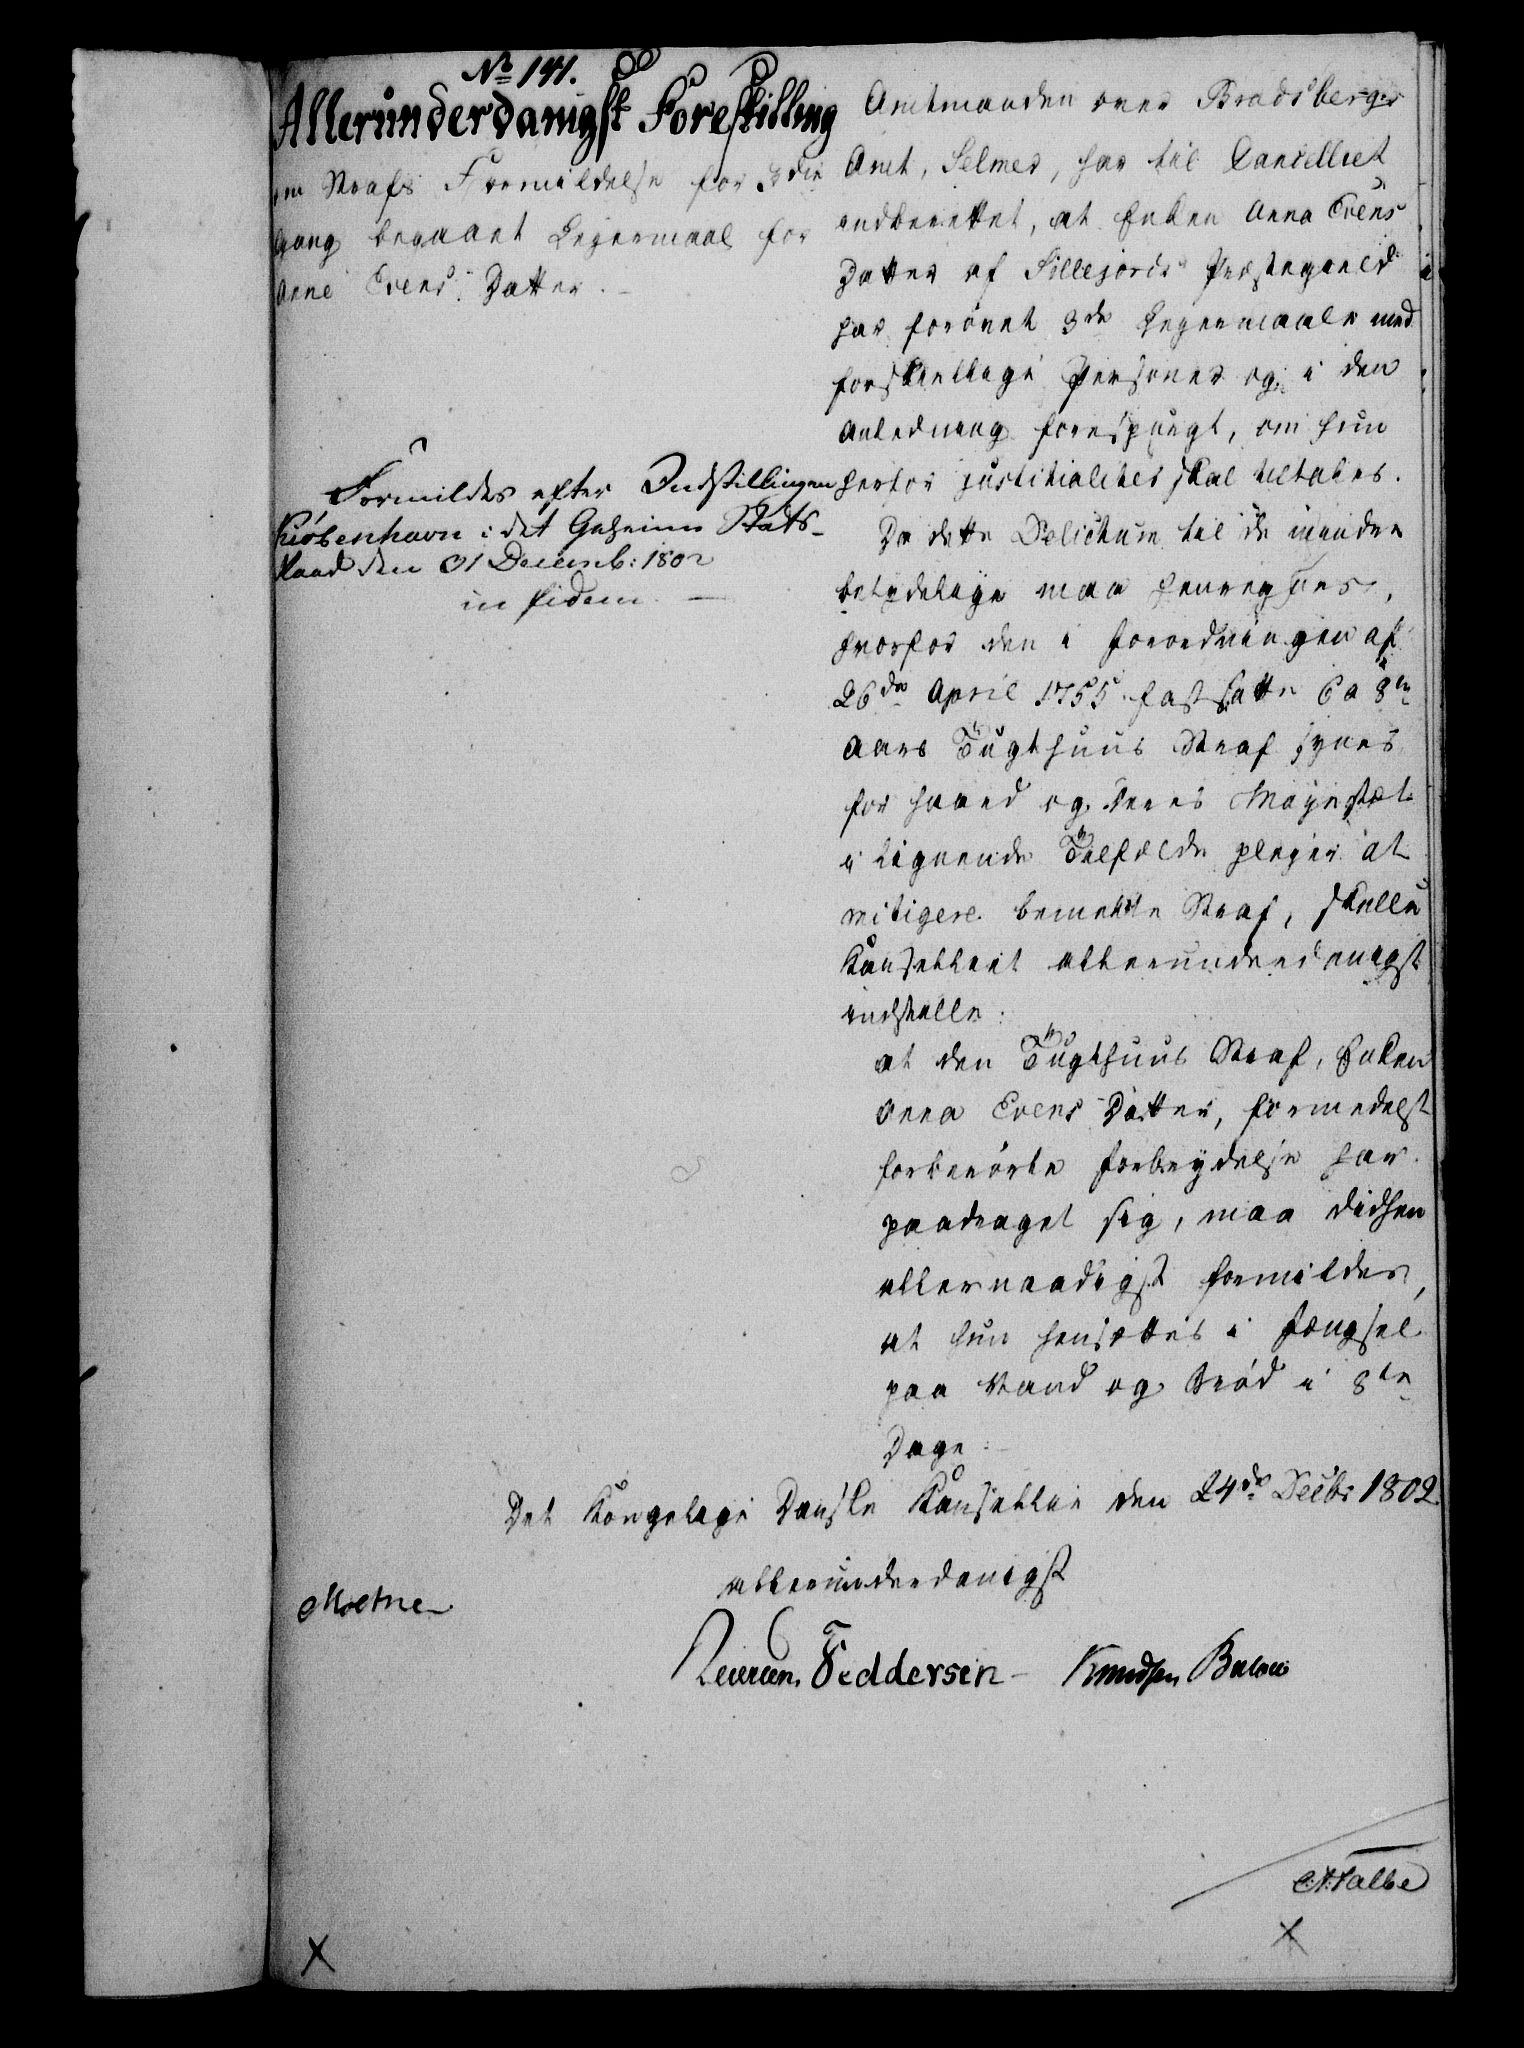 No 141.
Allerunderdanigst Forestilling
om Strafs Formildelse for 3die
Gang begaaet Leiermaal for
Anne Evens Datter.
Formildes efter Indstillingen
Kiøbenhavn i det Geheime Stats-
Raad den 31 Decemb: 1802
in fidem
Amtmanden over Bradsbergs
Amt, Selmer, har til Cancelliet
indberettet, at Enken Anna Evens
Datter af Sillejords Præstegield
har forøvet 3de Leiermaale med
forskiellige Personer og i den
Anledning forespurgt, om hun
herfor justitialiter skal tiltales.
Da dette Delictum til de mindre
betydelige maa henregnes,
hvorfor den i Forordningen af
26de April 1755 fastsatte 6 a 8te
Aars Tugthuus Straf synes
for haard og Deres Majestæt
i lignende Tilfælde pleier at
mitigere bemeldte Straf, skulle
Kanselliet allerunderdanigst
indstille:
at den Tugthuus Straf, Enken
Anna Evens Datter, formedelst
forberørte Forbrydelse har
paadraget sig, maa didhen
allernaadigst formildes,
at hun hensættes i Fængsel
paa Vand og Brød i 8te
Dage.
Det Kongelige Danske Kansellie den 24de Decbr 1802
allerunderdanigst
Moltne
Feddersen Knudsen Bülow